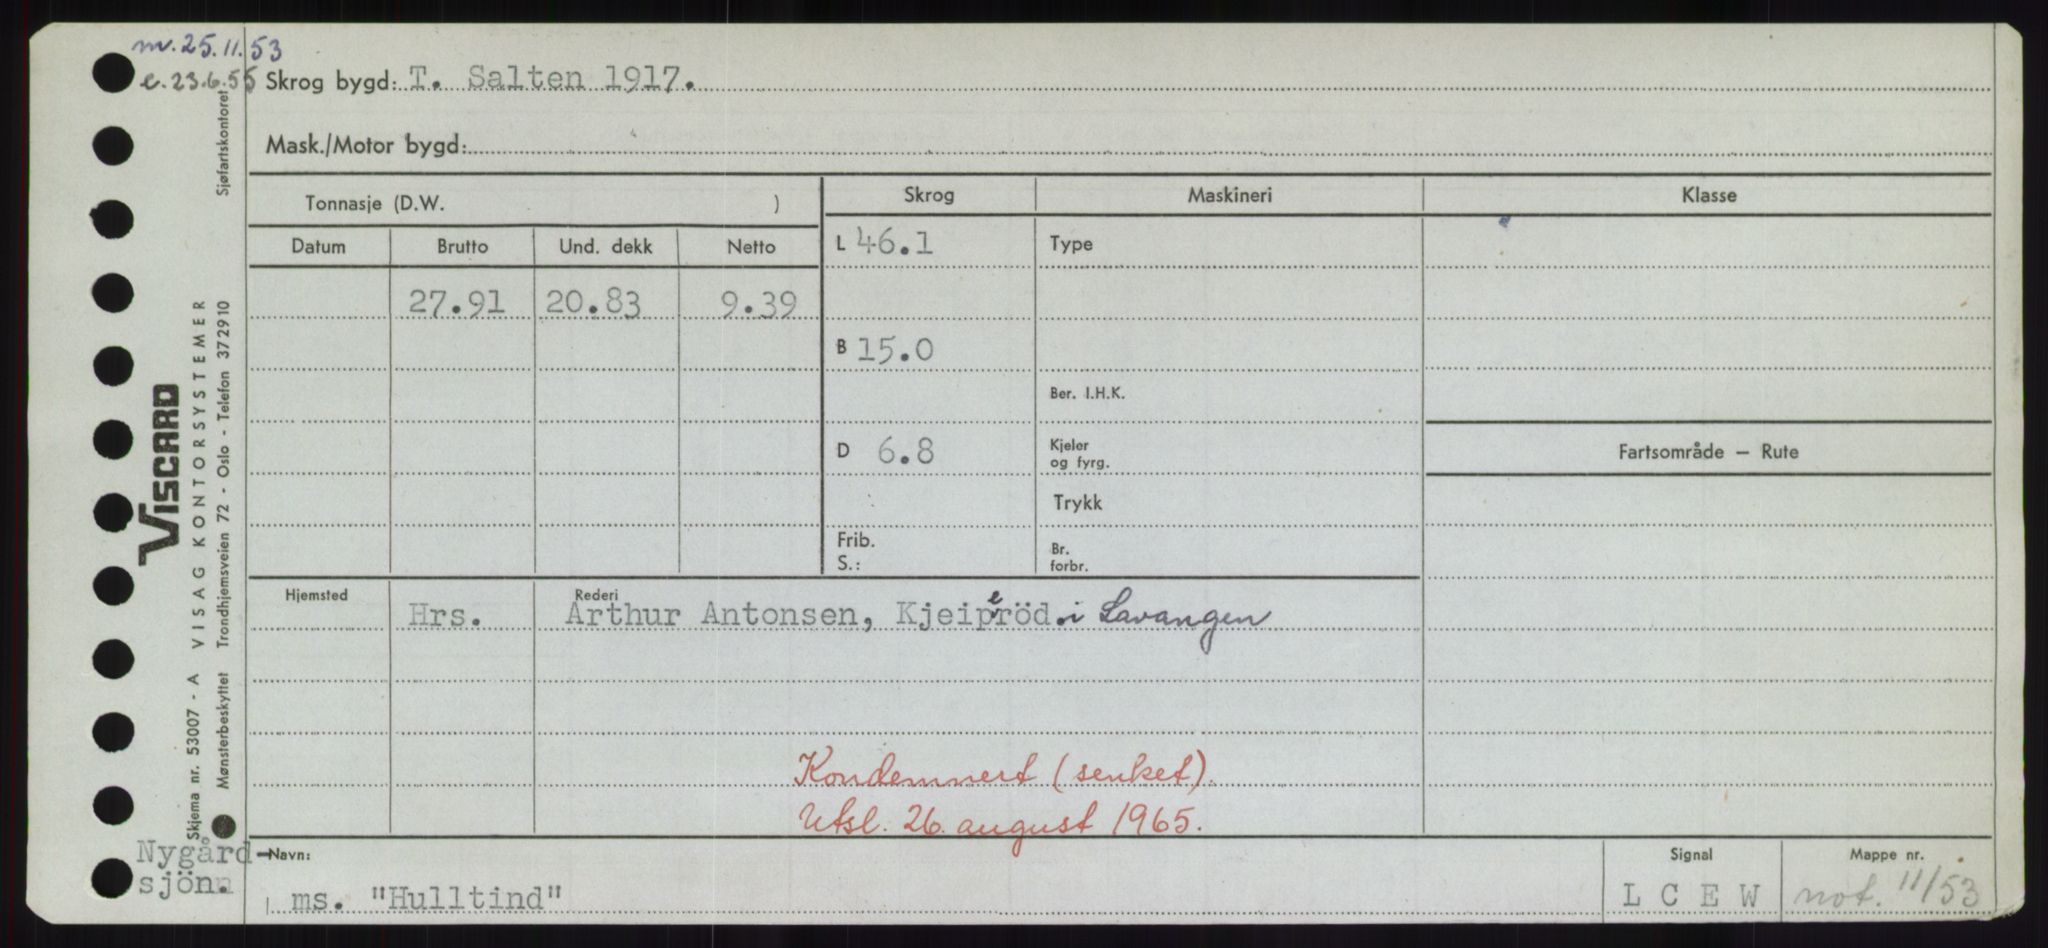 m. 25.11.53
e. 23.6.55
Skrog bygd: T. Salten 1917.
Mask./Motor bygd:
Tonnasje (D.W. )
Skrog Maskineri Klasse
Datum Brutto Und. dekk Netto
L 46.1 Type
27.91 20.83 9.39
B 15.0
Ber. I.H.K.
D 6.8 Kjeler og fyrg.
Fartsområde — Rute
Trykk
Frib.
S.:
Br. forbr.
Hjemsted Rederi
Hrs. Arthur Antonsen, Kjeiperöd. i Lavangen
Kondemnert (senket).
Utsl. 26. august 1965.
Nygård-
sjön.
Navn:
ms. "Hulltind"
Signal
L C E W
Mappe nr.
not. 11/53
VISCARD
VISAG KONTORSYSTEMER
Skjema nr. 53007 - A
Mønsterbeskyttet Trondhjemsveien 72 - Oslo - Telefon 372910
Sjøfartskontoret